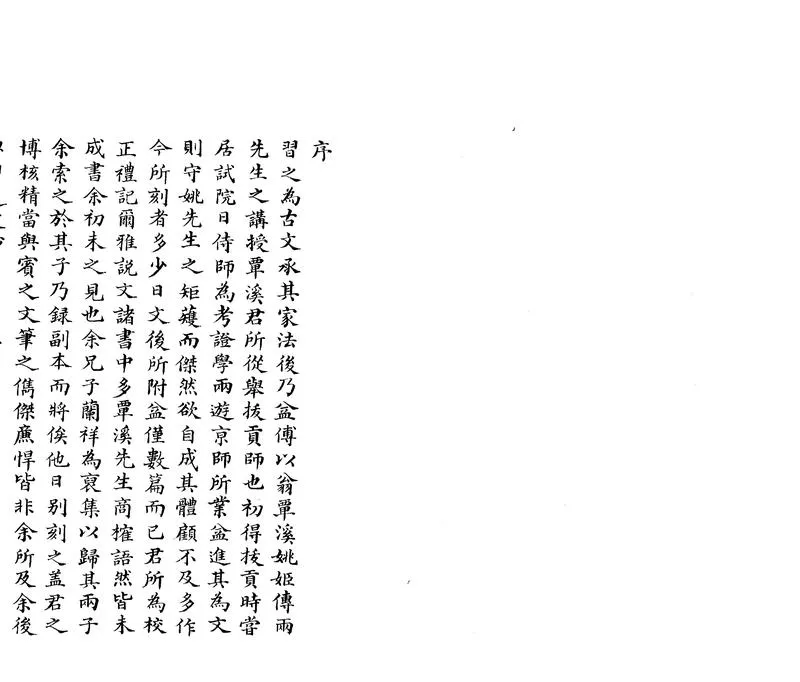 序
習之為古文承其家法後乃益傅以翁覃溪姚姬傳兩
先生之講授覃溪君所從舉拔貢師也初得拔貢時嘗
居試院日侍師為考證學兩遊京師所業益進其為文
則守姚先生之矩矱而傑然欲自成其體顧不及多作
今所刻者多少日文後所附益僅數篇而已君所為校
正禮記爾雅說文諸書中多覃溪先生商搉語然皆未
成書余初未之見也余兄子蘭祥為裒集以歸其兩子
余索之於其子乃録副本而將俟他日别刻之盖君之
博核精當與賓之文筆之儁傑廉悍皆非余所及余後